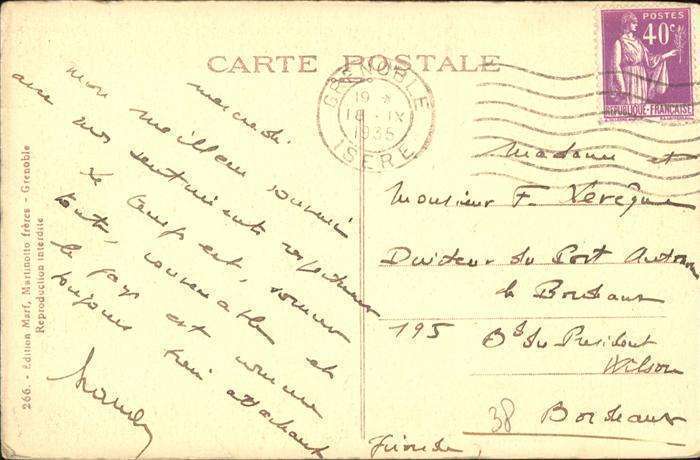 CARTE POSTALE
POSTES
40c
RÉPUBLIQUE FRANÇAISE
GRENOBLE
19 *
18 - IX
1935
ISERE
mercredi.
mon meilleur souvenir
avec mes sentiments respectueux
Le temps est, comme
toute, convenable et
le pays est comme
toujours très attachant
Madame et
Monsieur F. Verèque
Directeur du Port Autonome
de Bordeaux
195 Bd du Président
Wilson
38 Bordeaux
Gironde
266. - Édition Marf, Martinotto frères - Grenoble
Reproduction interdite